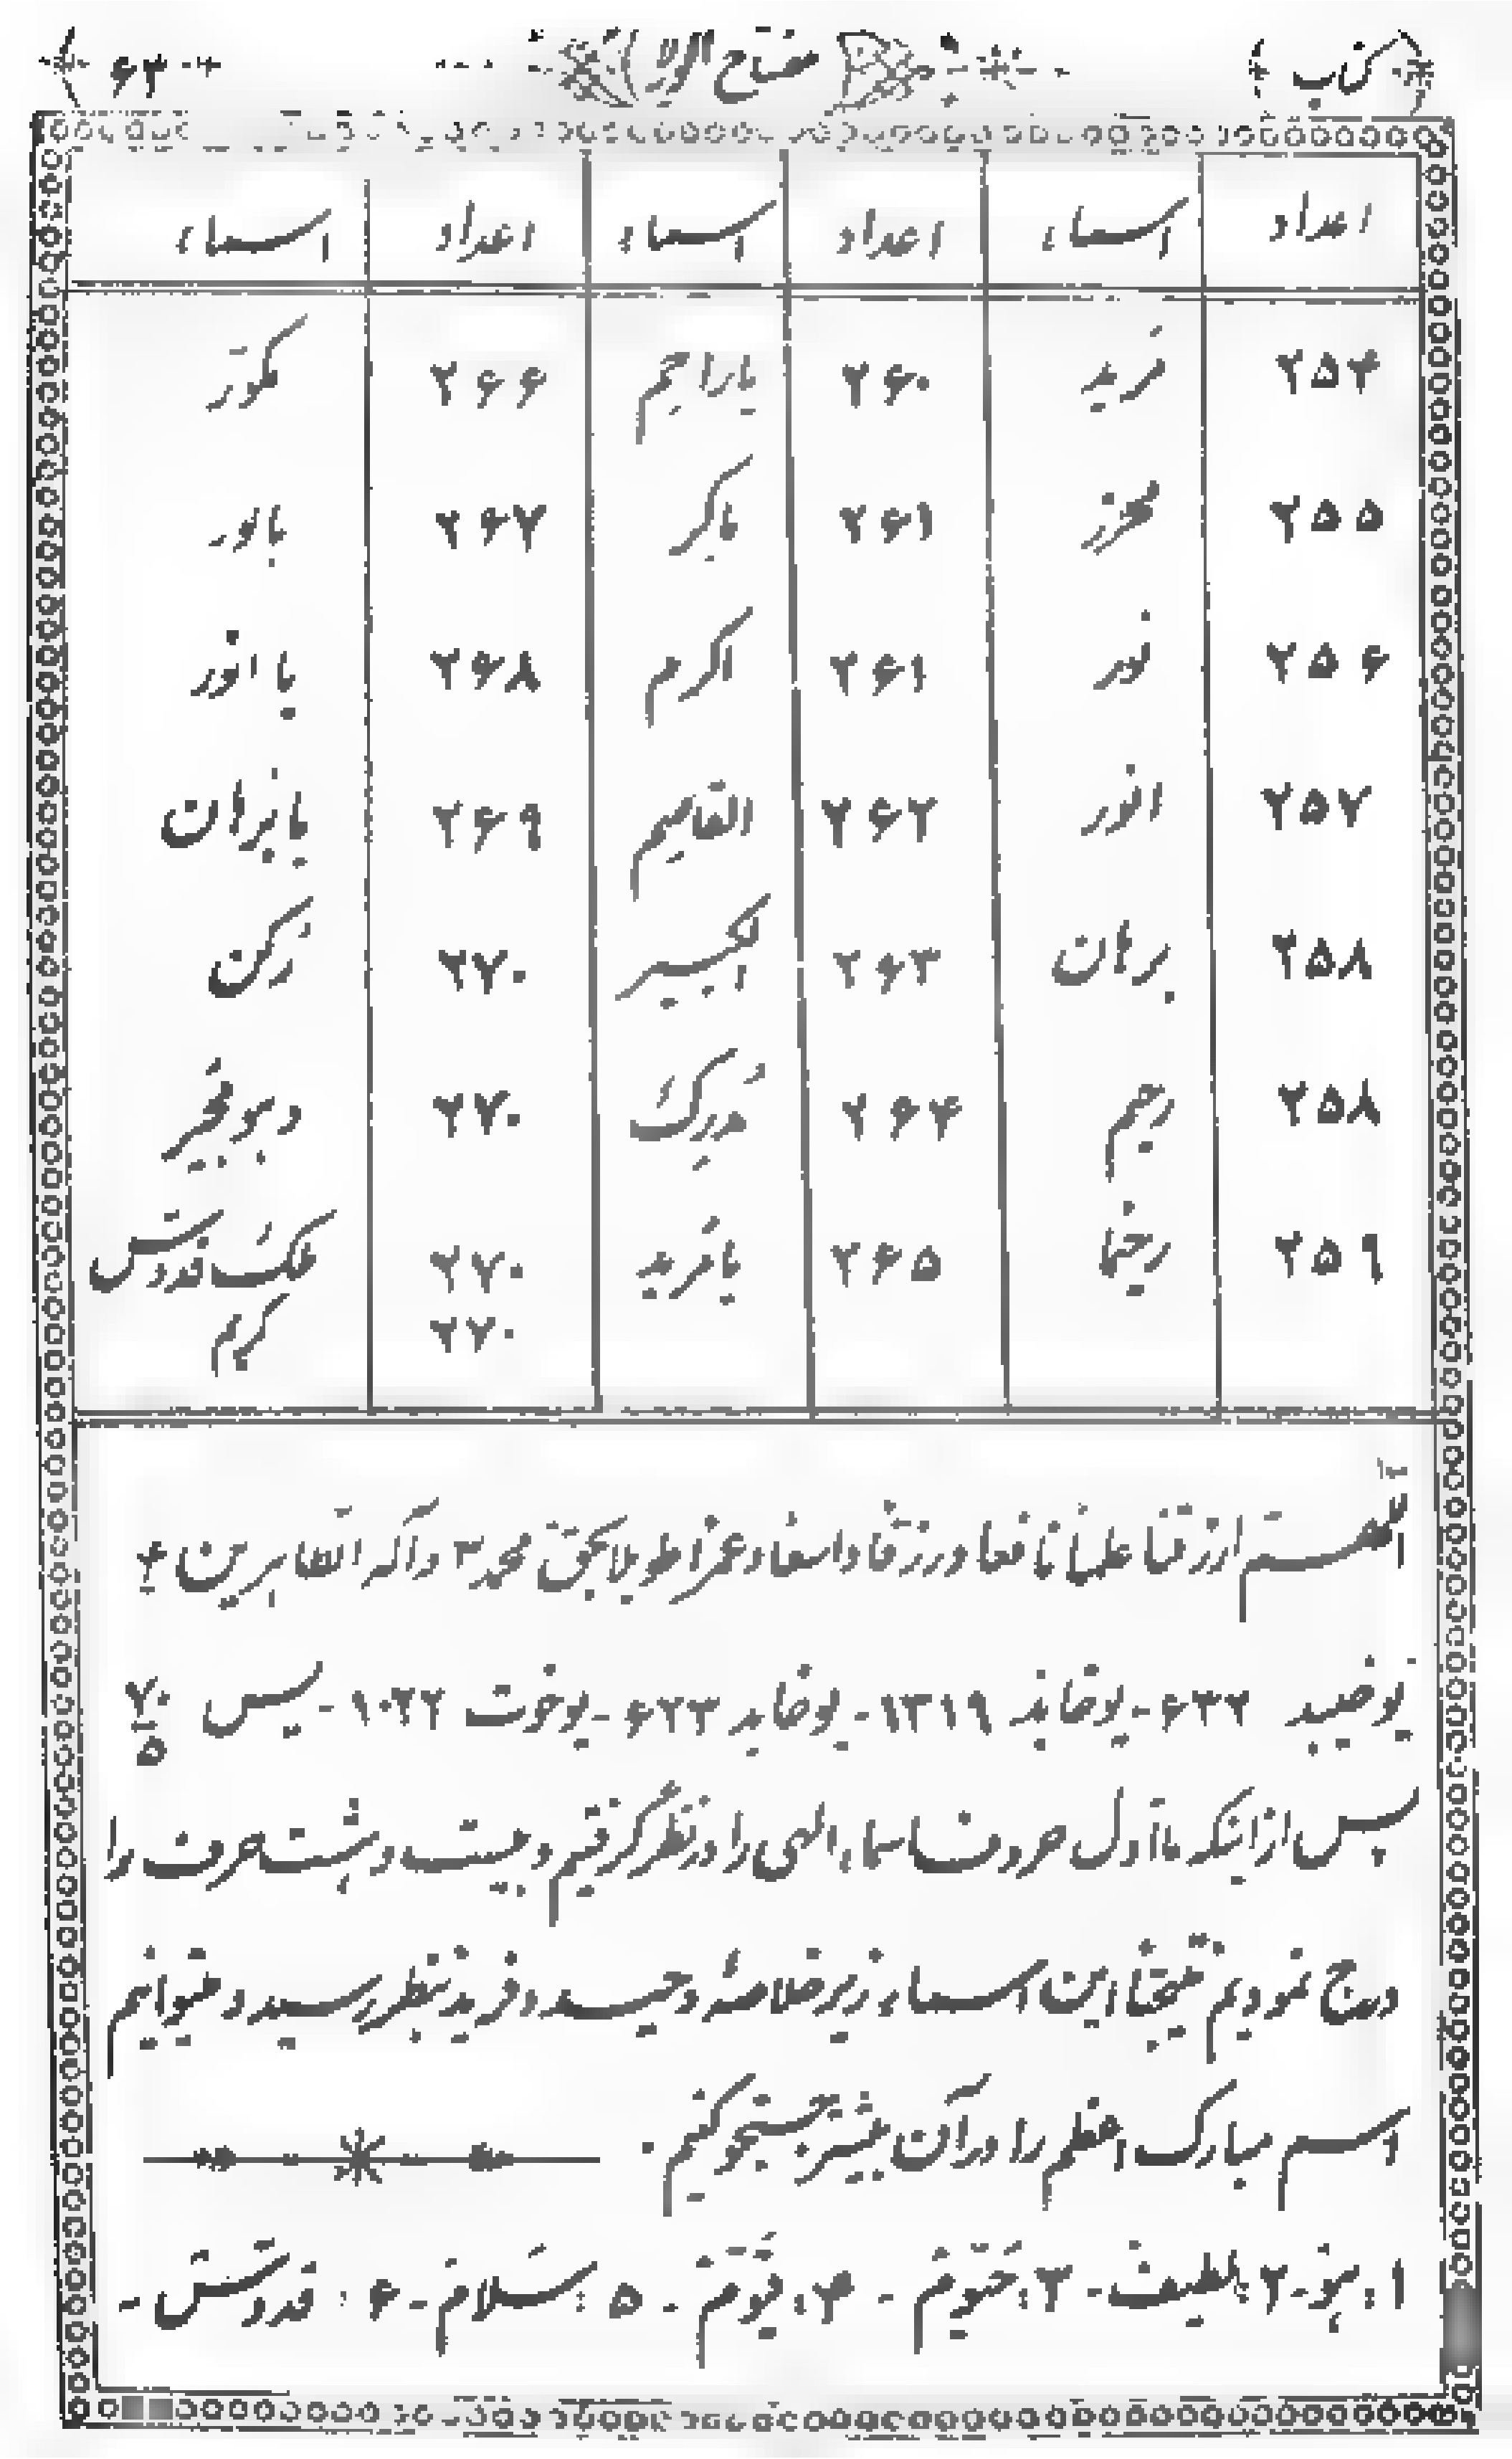 کتاب مفتاح ۶۳
اعداد اسماء اعداد اسماء اعداد اسماء
۲۵۴ مزید ۲۶۰ یاراحم ۲۶۶ مکور
۲۵۵ ۲۶۱ یاکر ۲۶۷ یانور
۲۵۶ نور ۲۶۱ اکرم ۲۶۸ یا انور
۲۵۷ انور ۲۶۲ القاصم ۲۶۹ یا نیران
۲۵۸ برهان ۲۶۳ اکبیر ۲۷۰ رکن
۲۵۸ رحیم ۲۶۴ مدرک ۲۷۰
۲۵۹ رحیما ۲۶۵ یا مزید ۲۷۰ ملک قدوس
۲۷۰ کریم
اللهم ارزقنا علماً نافعا و رزقا واسعا و عمرا طویلا بحق محمد ص و آله الطاهرین ع
۶۳۲ - ۱۳۱۹ - ۶۲۳ - ۱۰۲۲ - یس ۷۰/۵
پس از اینکه ما اول حروف اسماء الهی را در نظر گرفتیم و بیست و هشت حرف را
درج نمودیم نتیجتاً این اسماء زیر خلاصهٔ وحید و فرید بنظر رسید و میتوانیم
اسم مبارک اعظم را در آن بیشتر جستجو کنیم .
۱ : هو - ۲ : لطیف - ۳ : حیوم - ۴ : قیوم - ۵ : سلام - ۶ : قدوس -